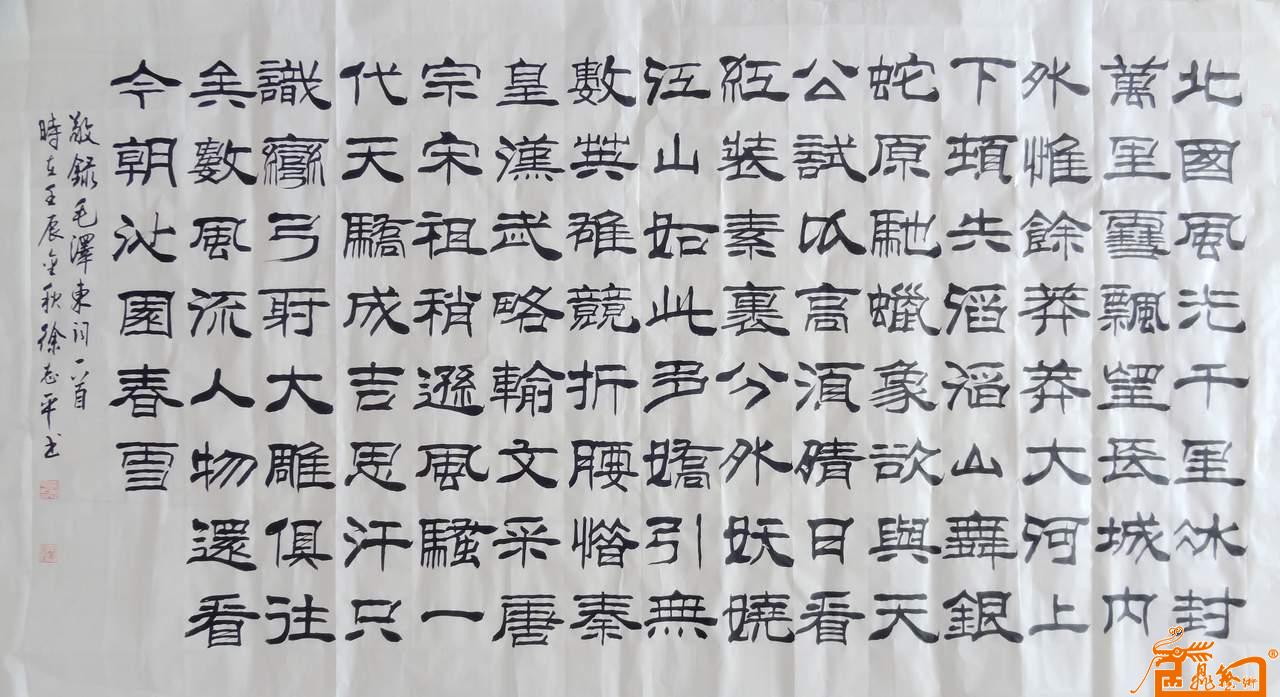 北國風光千里冰封
萬里雪飄望長城內
外惟餘莽莽大河上
下頓失滔滔山舞銀
蛇原馳蠟象欲與天
公試比高須晴日看
紅裝素裹分外妖嬈
江山如此多嬌引無
數英雄競折腰惜秦
皇漢武略輸文采唐
宗宋祖稍遜風騷一
代天驕成吉思汗只
識彎弓射大雕俱往
矣數風流人物還看
今朝沁園春雪
敬録毛澤東词一首
時在壬辰金秋徐志平书